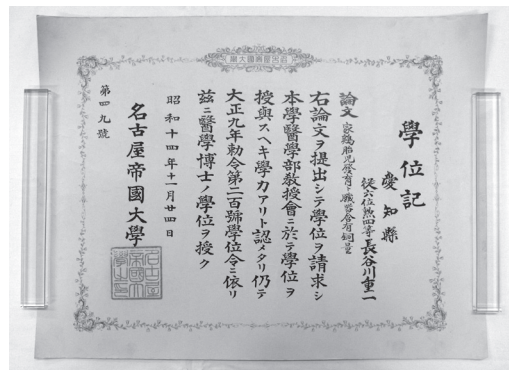 學位記
愛知縣
從六位勲四等長谷川重一
論文 家鷄胎兒發育ト臓器含有銅量
右論文ヲ提出シテ學位ヲ請求シ
本學醫學部敎授會ニ於テ學位ヲ
授與スヘキ學力アリト認メタリ仍テ
大正九年勅令第二百號學位令ニ依リ
茲ニ醫學博士ノ學位ヲ授ク
昭和十四年十一月廿四日
名古屋帝國大學
第四九號